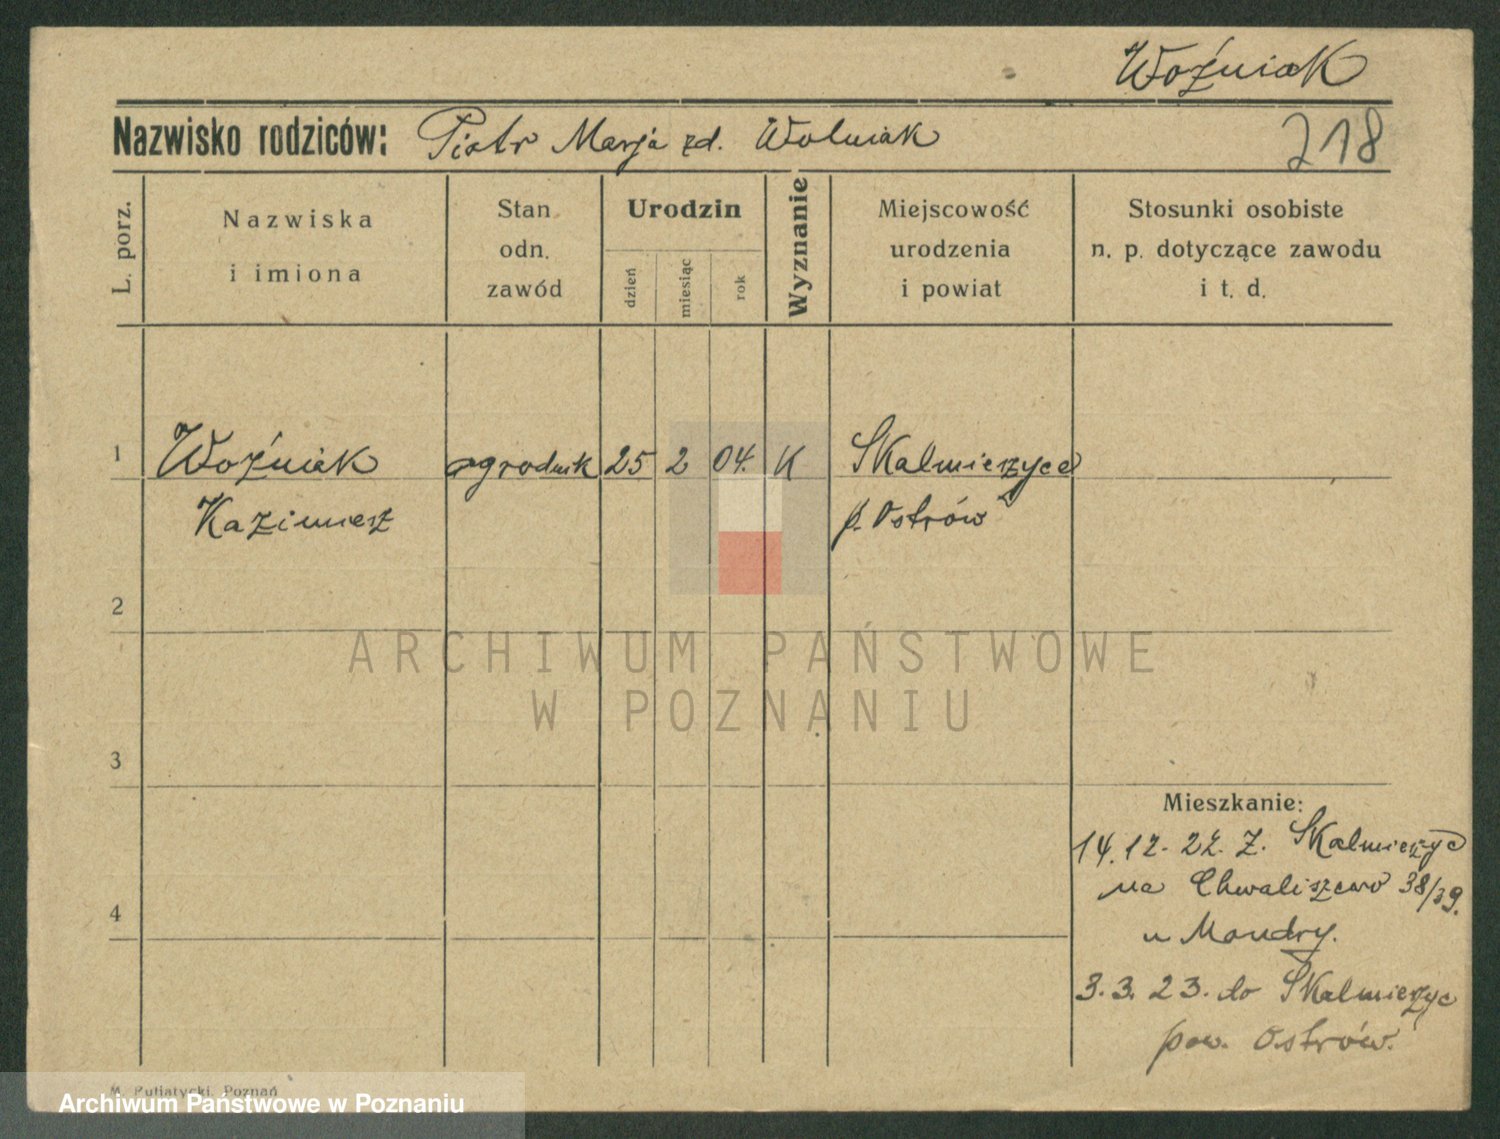 Woźniak
Nazwisko rodziców: Piotr Marja zd. Wolniak
218
L. porz.
Nazwiska
i imiona
Stan
odn.
zawód
Urodzin
dzień
miesiąc
rok
Wyznanie
Miejscowość
urodzenia
i powiat
Stosunki osobiste
n. p. dotyczące zawodu
i t. d.
1 Woźniak ogrodnik 25 2 04. K Skalmierzyce
Kazimierz p. Ostrów
2
ARCHIWUM PAŃSTWOWE
W POZNANIU
3
Mieszkanie:
14.12. 22. Z. Skalmierzyc
na Chwaliszewo 38/39.
4
u Mondry.
3.3.23. do Skalmierzyc
pow. Ostrów.
M. Putiatycki, Poznań
Archiwum Państwowe w Poznaniu